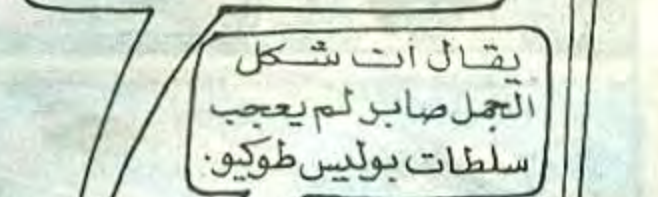 يقال أن شكل
الجمل صابر لم يعجب
سلطات بوليس طوكيو.